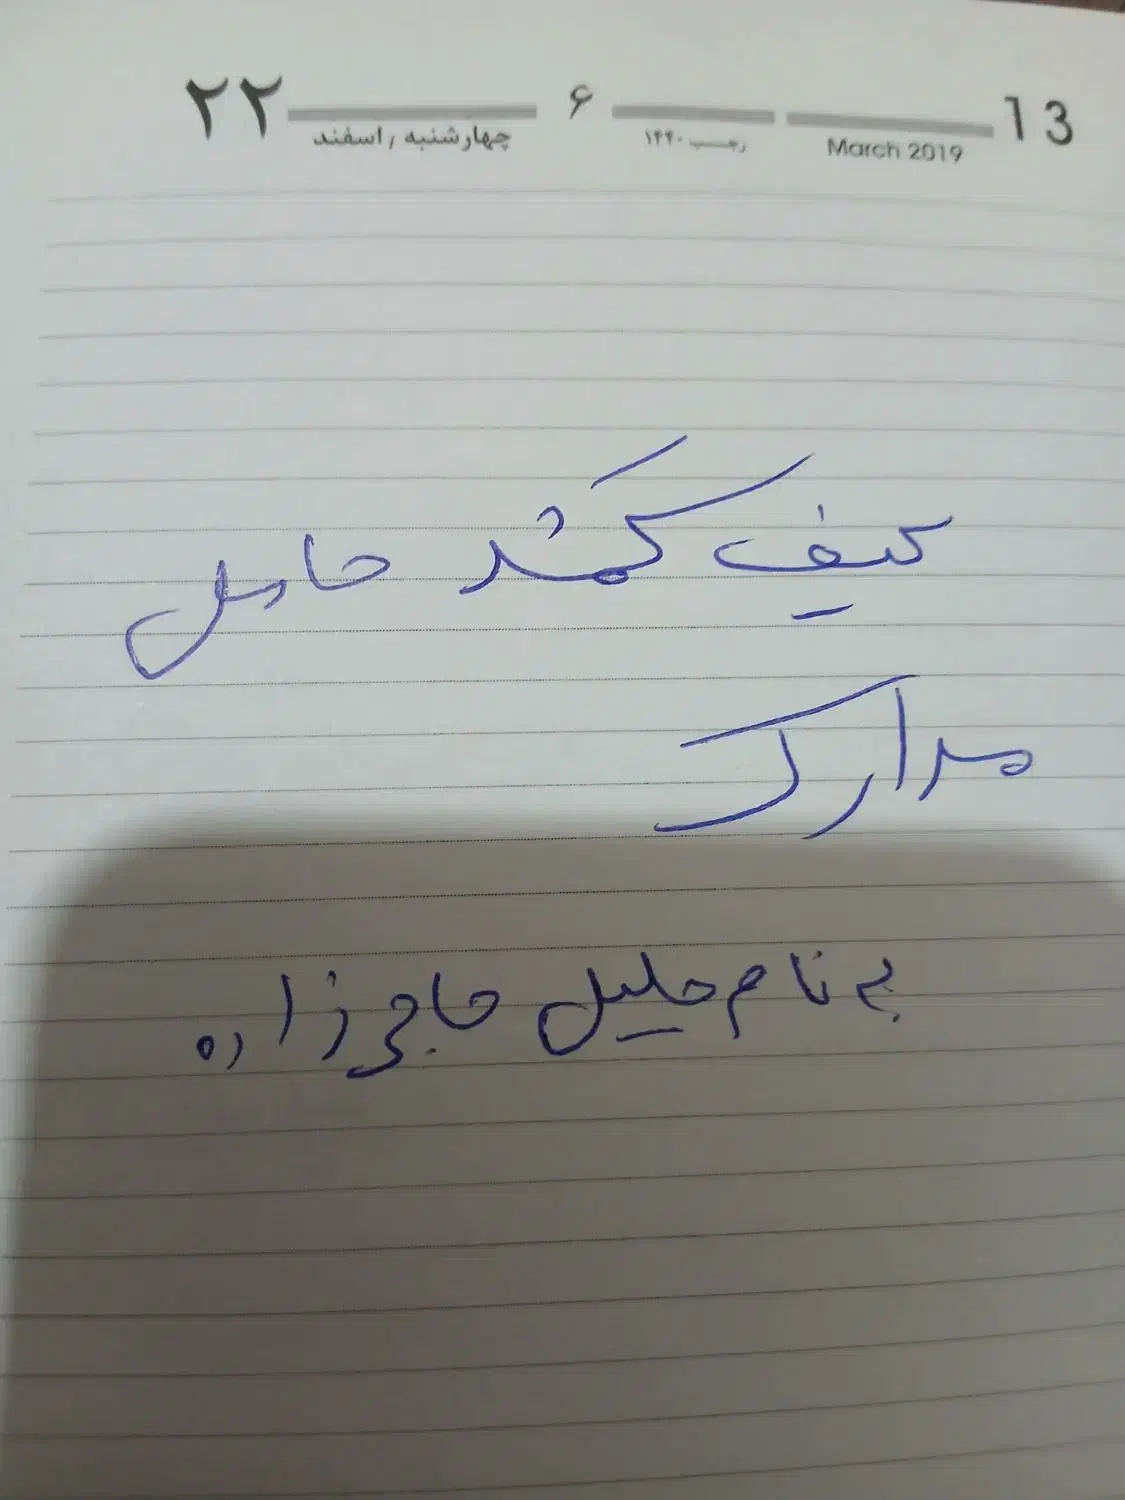 ۲۲ چهارشنبه / اسفند ۶ رجب ۱۴۴۰ March 2019 13
کیف گمشد حامل
مدارک
بی نام جلیل حاجی زاده